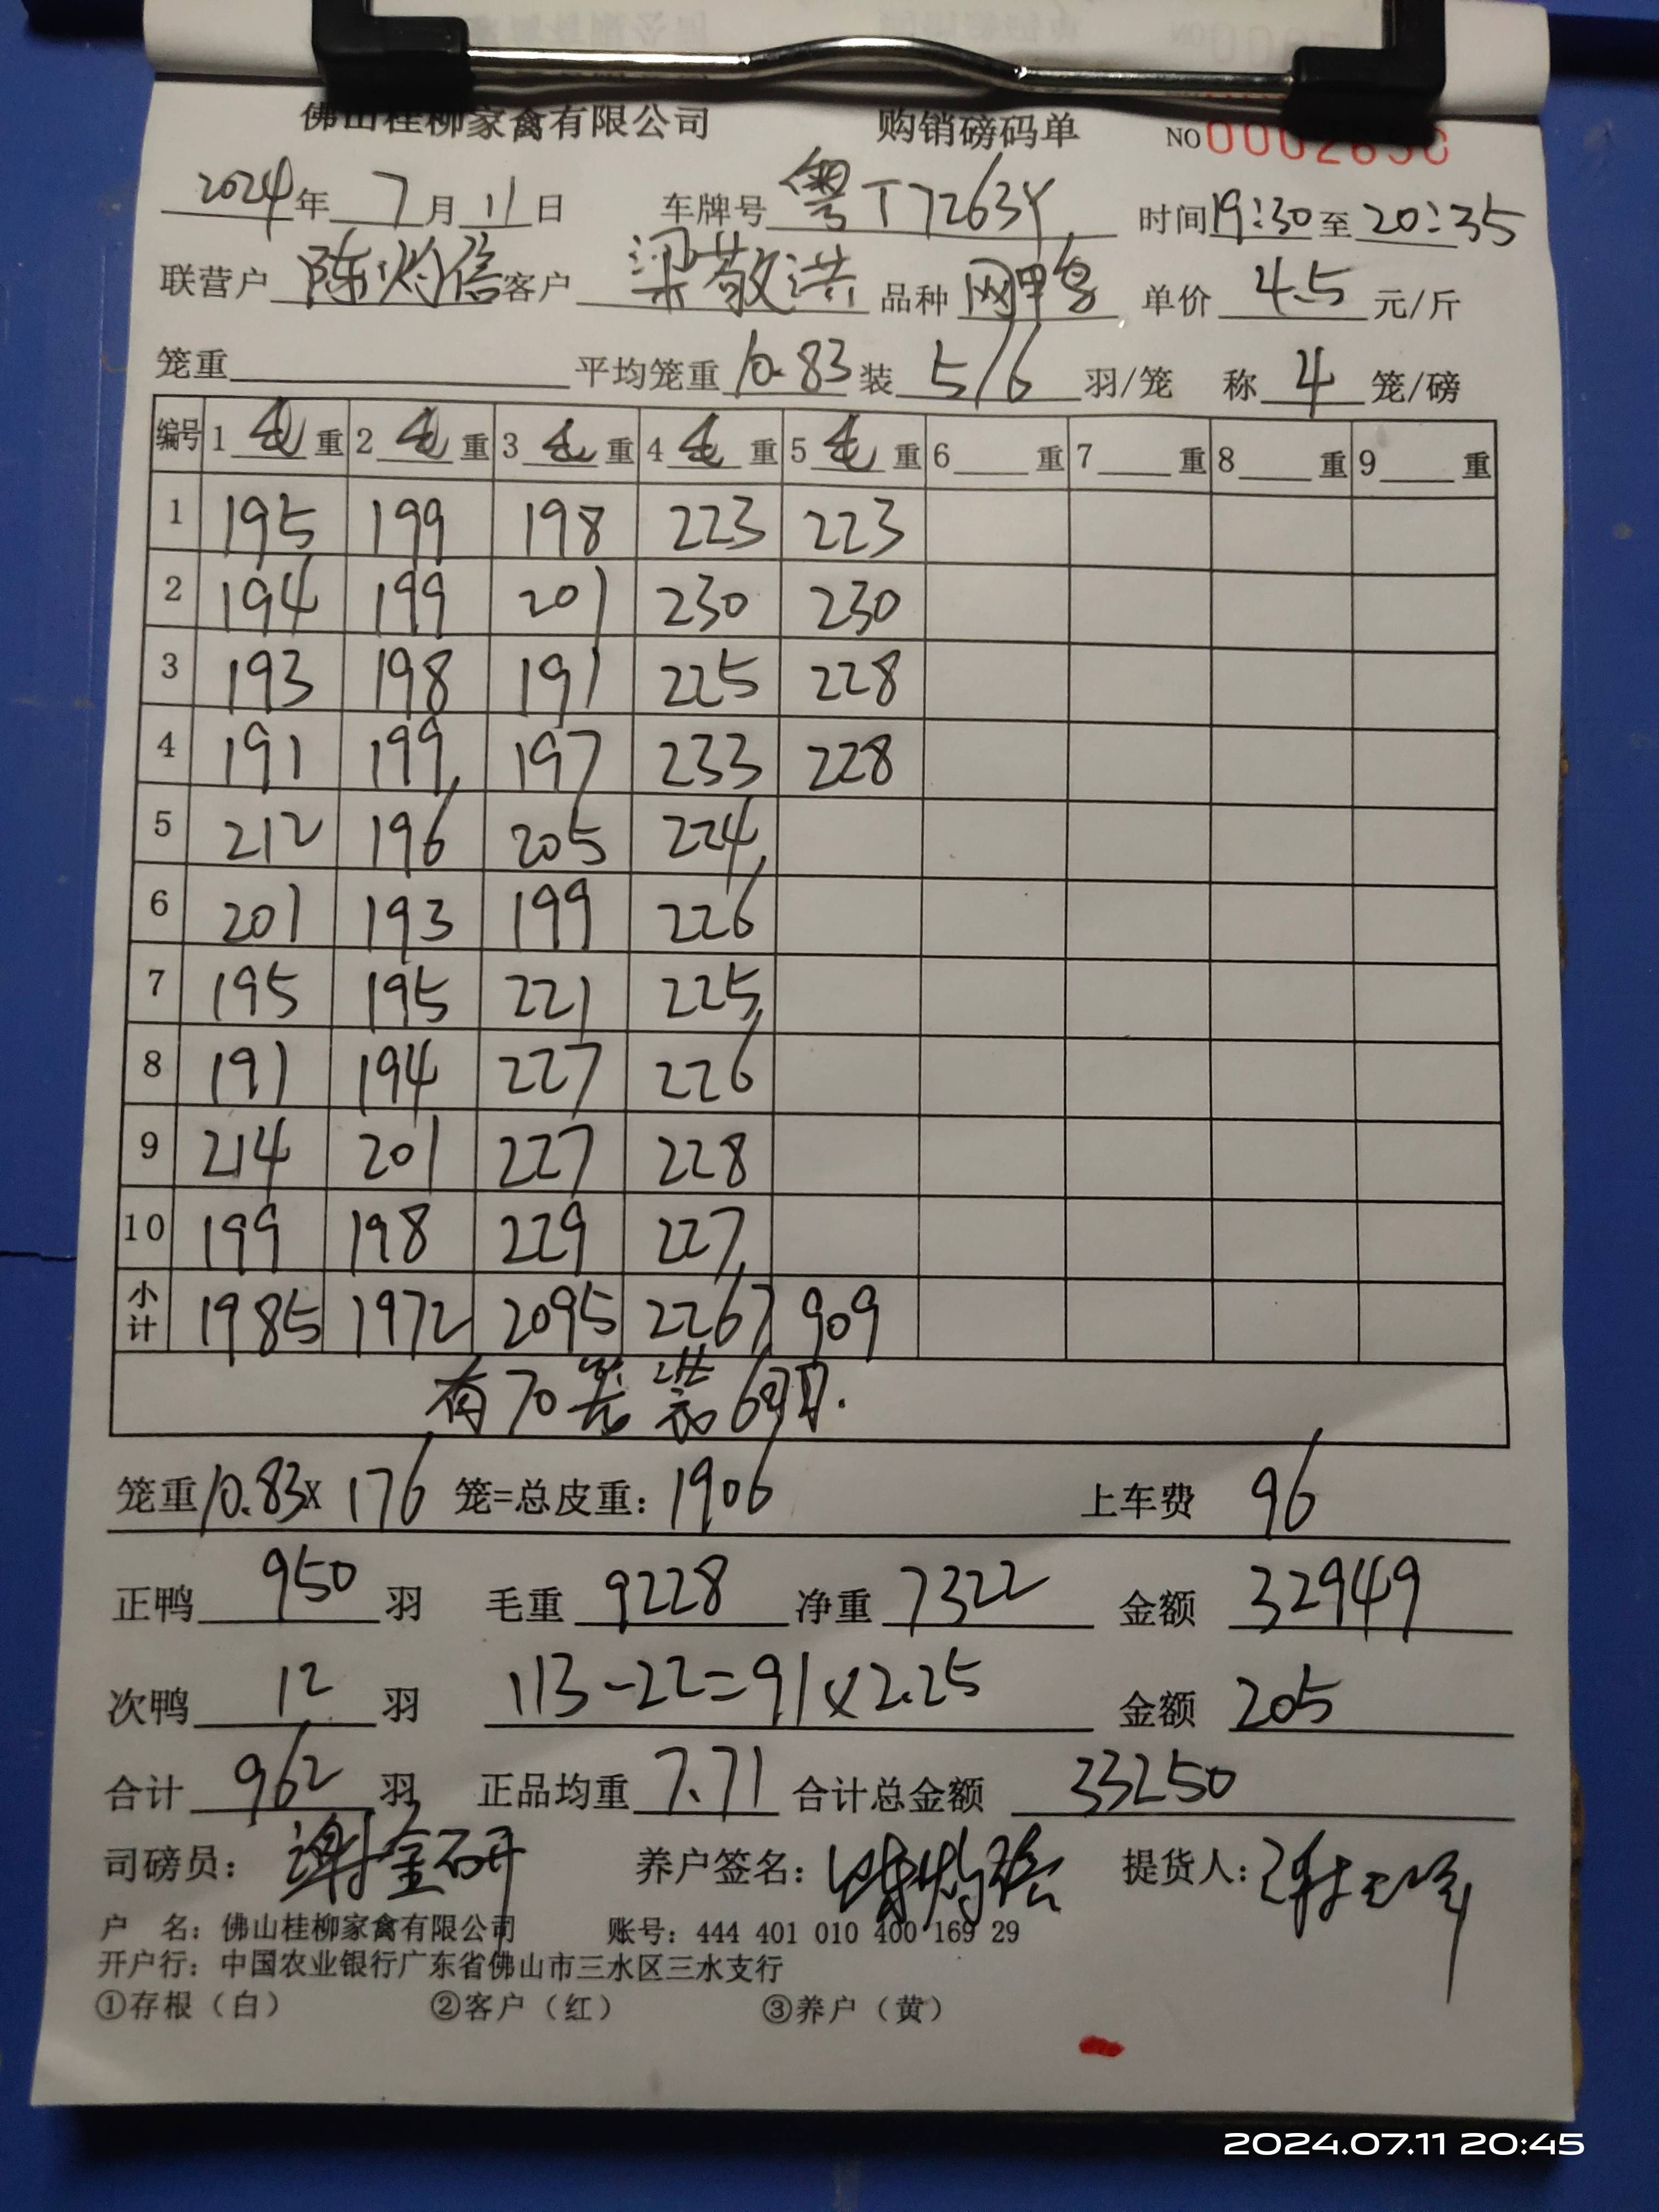 佛山桂柳家禽有限公司 购销磅码单 NO 0002650
2024年 7月 11日 车牌号 粤T7263Y 时间 19:30 至 20:35
联营户 陈灼信 客户 梁敬洪 品种 网鸭 单价 4.5 元/斤
笼重 平均笼重 10.83 装 5/6 羽/笼 称 4 笼/磅
编号 1 毛 重 2 毛 重 3 毛 重 4 毛 重 5 毛 重 6 重 7 重 8 重 9 重
1 195 199 198 223 223
2 194 199 201 230 230
3 193 198 191 225 228
4 191 199 197 233 228
5 212 196 205 224
6 201 193 199 226
7 195 195 221 225
8 191 194 227 226
9 214 201 227 228
10 199 198 229 227
小计 1985 1972 2095 2267 909
有70笼装6羽.
笼重 10.83 X 176 笼=总皮重: 1906 上车费 96
正鸭 950 羽 毛重 9228 净重 7322 金额 32949
次鸭 12 羽 113-22=91x2.25 金额 205
合计 962 羽 正品均重 7.71 合计总金额 33250
司磅员: 谢金研 养户签名: 陈灼信 提货人:
户 名: 佛山桂柳家禽有限公司 账号: 444 401 010 400 169 29
开户行: 中国农业银行广东省佛山市三水区三水支行
①存根(白) ②客户(红) ③养户(黄)
2024.07.11 20:45